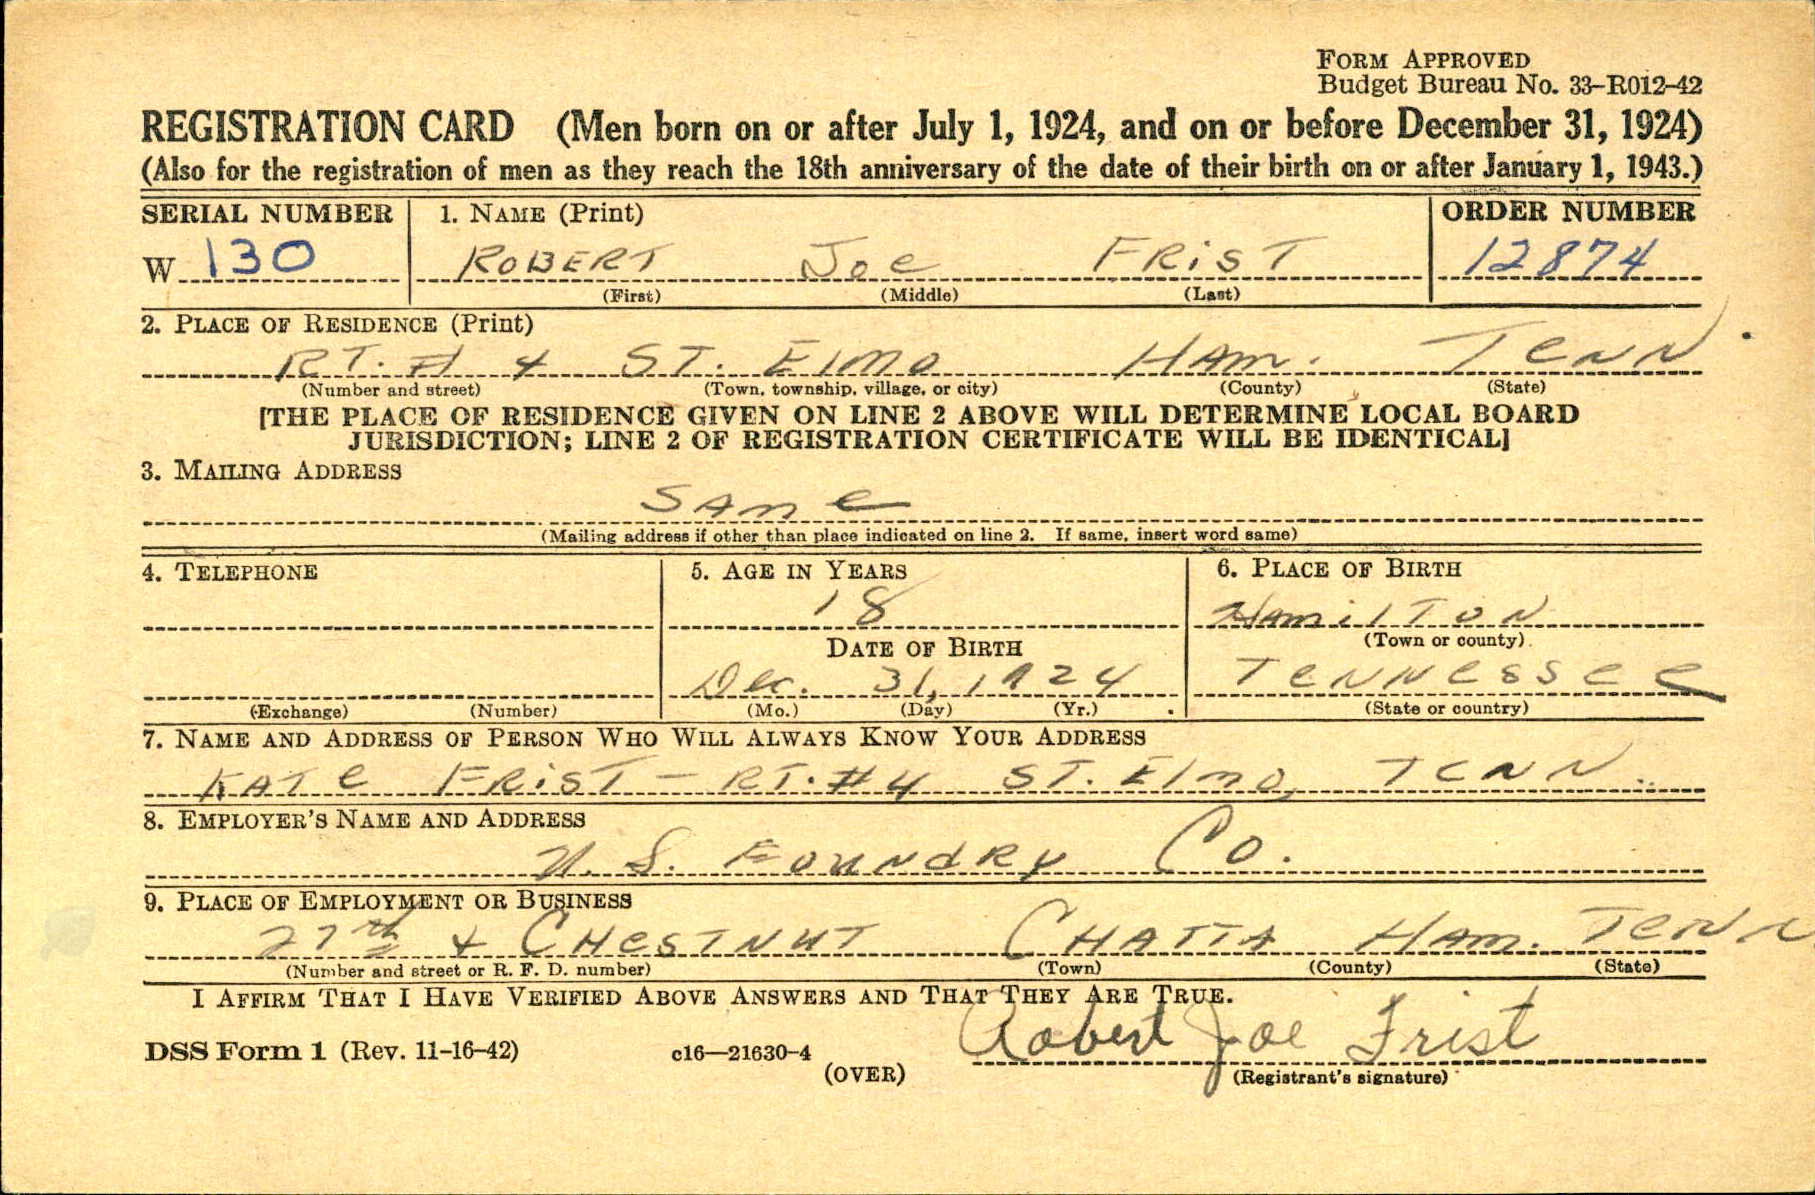 FORM APPROVED
Budget Bureau No. 33-R012-42
REGISTRATION CARD (Men born on or after July 1, 1924, and on or before December 31, 1924)
(Also for the registration of men as they reach the 18th anniversary of the date of their birth on or after January 1, 1943.)
SERIAL NUMBER 1. NAME (Print) ORDER NUMBER
W 130 ROBERT Joe FRiST 12874
(First) (Middle) (Last)
2. PLACE OF RESIDENCE (Print)
RT. # 4 ST. Elmo HAm. Tenn.
(Number and street) (Town, township, village, or city) (County) (State)
[THE PLACE OF RESIDENCE GIVEN ON LINE 2 ABOVE WILL DETERMINE LOCAL BOARD
JURISDICTION; LINE 2 OF REGISTRATION CERTIFICATE WILL BE IDENTICAL]
3. MAILING ADDRESS
SAme
(Mailing address if other than place indicated on line 2. If same, insert word same)
4. TELEPHONE 5. AGE IN YEARS 6. PLACE OF BIRTH
18 HAmilTON
DATE OF BIRTH (Town or county)
Dec. 31, 1924 TeNNessee
(Exchange) (Number) (Mo.) (Day) (Yr.) (State or country)
7. NAME AND ADDRESS OF PERSON WHO WILL ALWAYS KNOW YOUR ADDRESS
KATe FRiST - RT. #4 ST. Elmo, TeNN.
8. EMPLOYER'S NAME AND ADDRESS
U. S. FOUNdRy Co.
9. PLACE OF EMPLOYMENT OR BUSINESS
27th & CHesTNUT CHATTA HAm. TeNN
(Number and street or R. F. D. number) (Town) (County) (State)
I AFFIRM THAT I HAVE VERIFIED ABOVE ANSWERS AND THAT THEY ARE TRUE.
DSS Form 1 (Rev. 11-16-42) c16—21630-4 Robert Joe Frist
(OVER) (Registrant's signature)